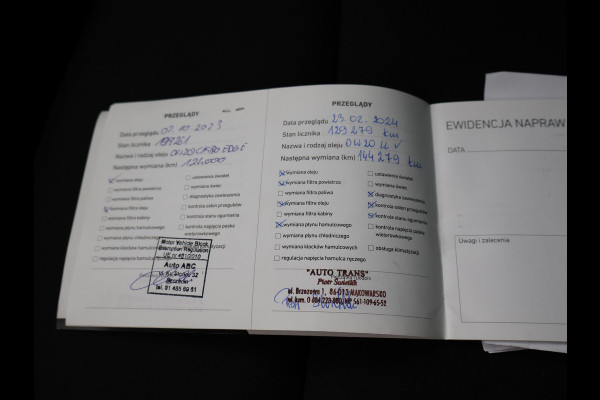 PRZEGLĄDY
Data przeglądu 02.10.2023
Stan licznika
Nazwa i rodzaj oleju 0W20
Następna wymiana (km) 121.000
wymiana oleju
ustawienie świateł
wymiana filtra powietrza
wymiana świec
wymiana filtra paliwa
diagnostyka zawieszenia
wymiana filtra oleju
kontrola osłon przegubów
wymiana filtra kabiny
kontrola stanu ogumienia
wymiana płynu hamulcowego
kontrola napięcia paska
wymiana płynu chłodniczego
wymiana klocków hamulcowych
regulacja napięcia
Motor Vehicle Block
Exemption Regulation
UE nr 461/2010
Auto ABC
PRZEGLĄDY
Data przeglądu 23.02.2024
Stan licznika 129 279 km
Nazwa i rodzaj oleju 0W20
Następna wymiana (km) 144 279 km
wymiana oleju
ustawienie świateł
wymiana filtra powietrza
wymiana świec
wymiana filtra paliwa
diagnostyka zawieszenia
wymiana filtra oleju
kontrola osłon przegubów
wymiana filtra kabiny
kontrola stanu ogumienia
wymiana płynu hamulcowego
kontrola napięcia paska
wielorowkowego
wymiana płynu chłodniczego
wymiana klocków hamulcowych
obsługa klimatyzacji
regulacja napięcia hamulca ręcznego
"AUTO TRANS"
Piotr Świetlik
ul. Brzozowa 1, 86-013 MĄKOWARSKO
EWIDENCJA NAPRAW
DATA
Uwagi i zalecenia